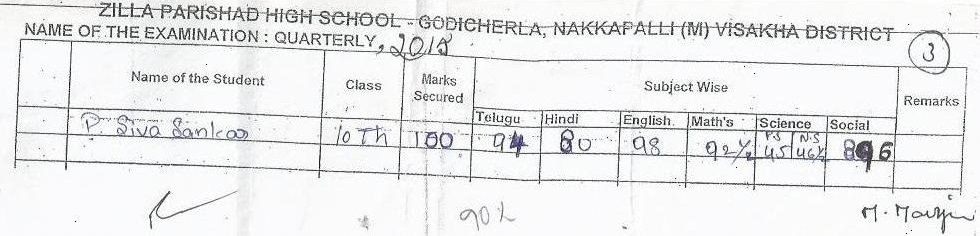 ZILLA PARISHAD HIGH SCHOOL - GODICHERLA, NAKKAPALLI (M) VISAKHA DISTRICT
NAME OF THE EXAMINATION : QUARTERLY, 2018
3
Name of the Student Class Marks Secured Subject Wise Remarks
Telugu Hindi English Math's Science Social
P.S N.S
P. Siva Sankar 10Th 100 94 80 98 92½ 45 46½ 96
90%